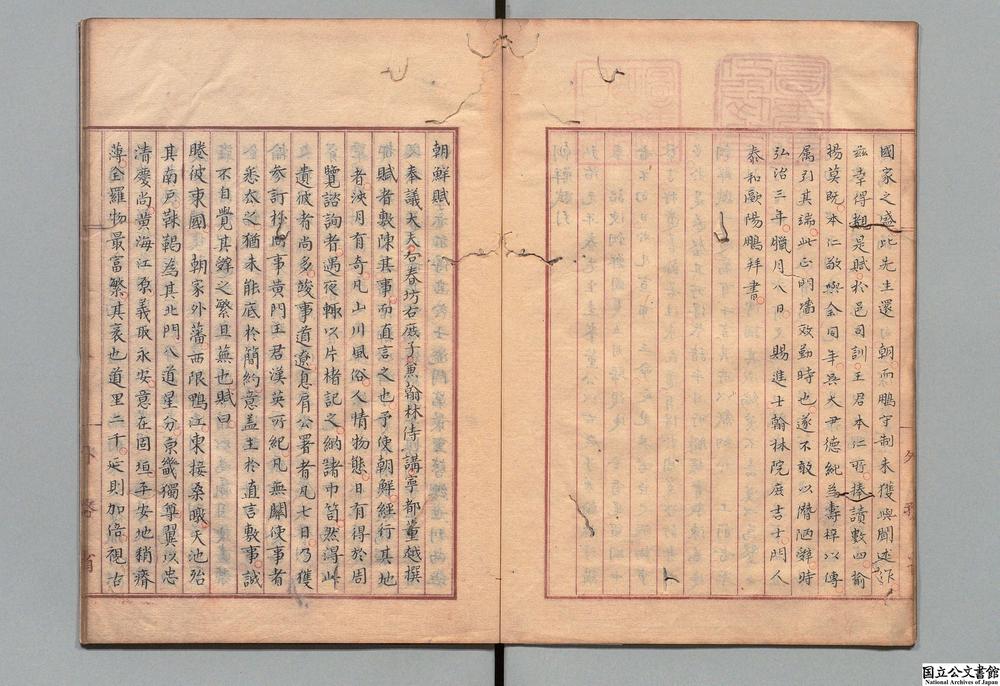 國家之盛此先生還 朝而鵬守制未獲與聞述作
兹幸得觀是賦於邑司訓王君本仁所捧讀數四愉
揚莫既本仁敬與余同年吳大尹德純為壽梓以傳
属引其端此正門墻效勤時也遂不敢以膚陋辭時
弘治三年臘月八日 賜進士翰林院庶吉士門人
泰和歐陽鵬拜書
朝鮮賦
奉議大夫右春坊右庶子兼翰林侍講寧都董越撰
賦者敷陳其事而直言之也予使朝鮮經行其地
者浹月有奇凡山川風俗人情物態日有得於周
覽諮詢者遇夜輒以片楮記之納諸巾笥然得此
遺彼者尚多竣事道遼息肩公署者凡七日乃獲
參訂於同事黃門王君漢英所紀凡無關使事者
悉去之猶未能底於簡約意盖主於直言敷事誠
不自覺其辭之繁且蕪也賦曰
睠彼東國 朝家外藩西限鴨江東接桑暾天池殆
其南戶靺鞨為其北門八道星分京畿獨尊翼以忠
清慶尚黃海江原義取永安意在固垣平安地稍瘠
薄全羅物最富繁其袤也道里二千延則加倍視古
国立公文書館
National Archives of Japan